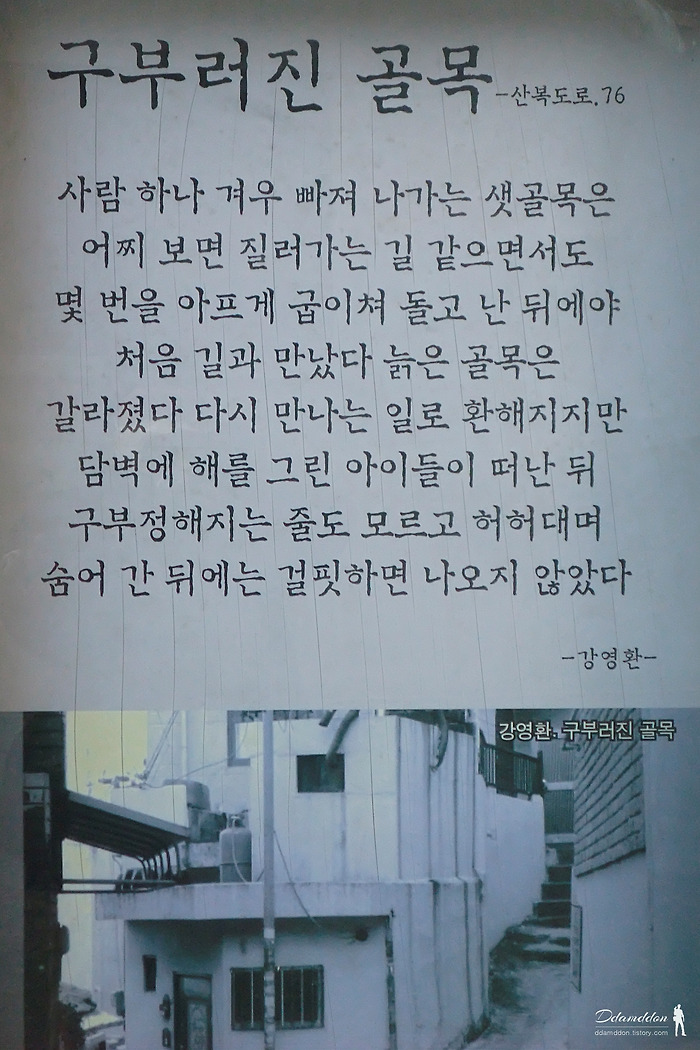 구부러진 골목 -산복도로.76
사람 하나 겨우 빠져 나가는 샛골목은
어찌 보면 질러가는 길 같으면서도
몇 번을 아프게 굽이쳐 돌고 난 뒤에야
처음 길과 만났다 늙은 골목은
갈라졌다 다시 만나는 일로 환해지지만
담벽에 해를 그린 아이들이 떠난 뒤
구부정해지는 줄도 모르고 허허대며
숨어 간 뒤에는 걸핏하면 나오지 않았다
-강영환-
강영환. 구부러진 골목
Ddamddon
ddamddon.tistory.com